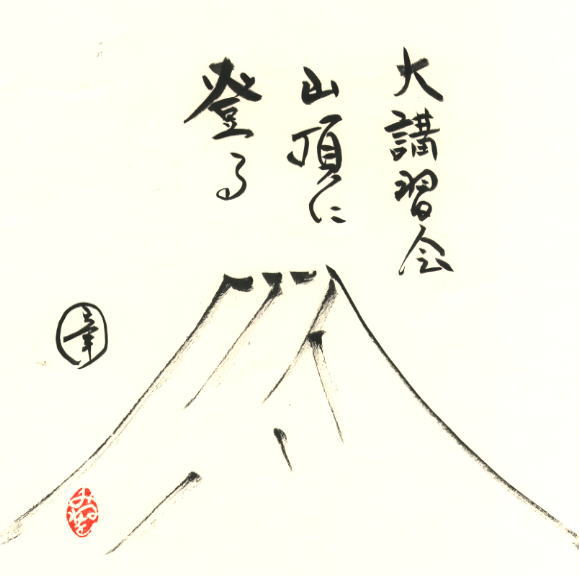 大講習会
山頂に
登る